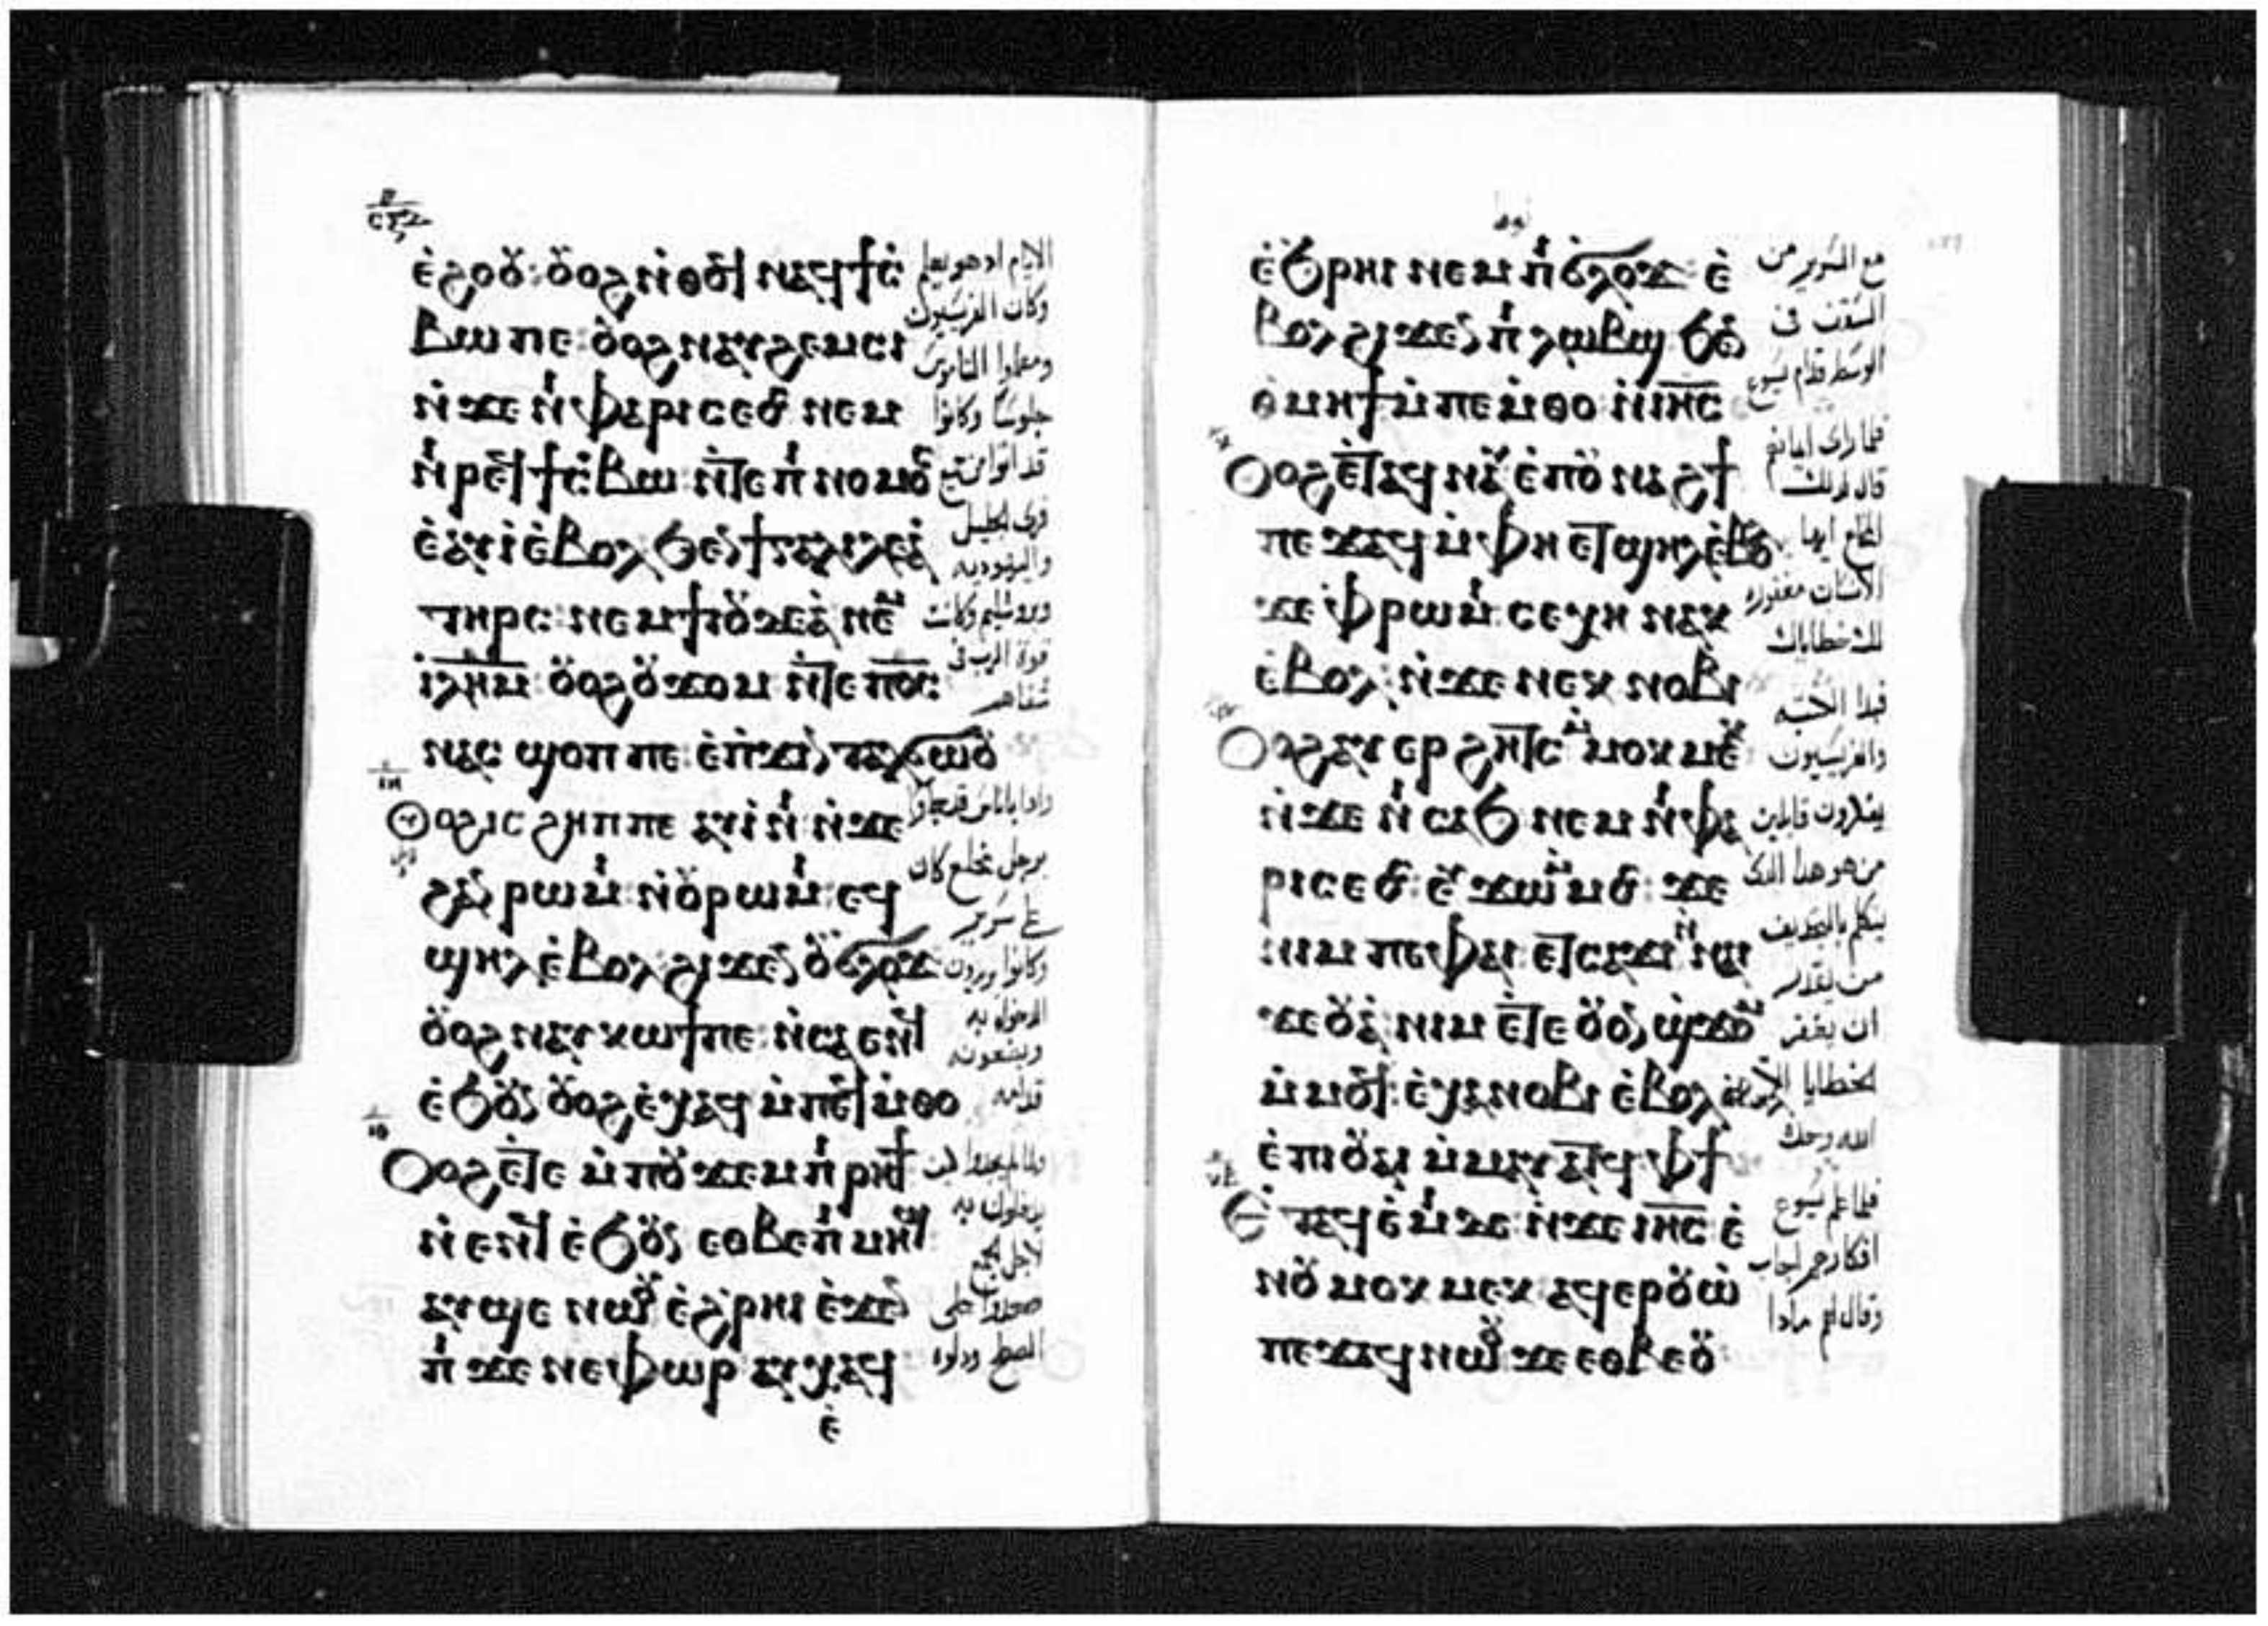 ⲉ̀ϩⲟⲟⲩ: ⲟⲩⲟϩ ⲛ̀ⲑⲟϥ ⲛⲁϥϯⲥ
ⲃⲱ ⲡⲉ: ⲟⲩⲟϩ ⲛⲁⲩϩⲉⲙⲥⲓ
ⲛ̀ϫⲉ ⲛⲓⲫⲁⲣⲓⲥⲉⲟⲥ ⲛⲉⲙ
ⲛⲓⲣⲉϥϯⲥⲃⲱ ⲛ̀ⲧⲉ ⲡⲓⲛⲟⲙⲟⲥ
ⲉ̀ⲁⲩⲓ̀ ⲉ̀ⲃⲟⲗ ϧⲉⲛ ϯⲅⲁⲗⲓⲗⲉⲁ̀
ⲧⲏⲣⲥ: ⲛⲉⲙ ϯⲓⲟⲩⲇⲉⲁ̀ ⲛⲉⲙ
ⲓ̀ⲗⲏⲙ: ⲟⲩⲟϩ ⲟⲩϫⲟⲙ ⲛ̀ⲧⲉ ⲡⲟ̅ⲥ̅:
ⲛⲁⲥ ϣⲟⲡ ⲡⲉ: ⲉ̀ⲡϫⲓⲛⲧⲁⲗϭⲱⲟⲩ
ⲓⲏ
ⲟⲩⲟϩ ⲓⲥ ϩⲏⲡⲡⲉ ⲁⲩⲓ̀ⲛⲓ ⲛ̀ϫⲉ
ϩⲁⲛⲣⲱⲙⲓ: ⲛ̀ⲟⲩⲣⲱⲙⲓ: ⲉϥ
ϣⲏⲗ ⲉ̀ⲃⲟⲗ ϩⲓϫⲉⲛ ⲟⲩϭⲗⲟϫ
ⲟⲩⲟϩ ⲛⲁⲩⲕⲱϯ ⲡⲉ: ⲛ̀ⲥⲁ ⲉⲛϥ
ⲉ̀ϧⲟⲩⲛ ⲟⲩⲟϩ ⲉ̀ⲭⲁϥ ⲙ̀ⲡⲉϥⲙ̀ⲑⲟ
ⲓⲑ
ⲟⲩⲟϩ ⲉ̀ⲧⲉ ⲙ̀ⲡⲟⲩϫⲉⲙ ⲡⲓⲣⲏϯ
ⲛ̀ⲉⲛϥ ⲉ̀ϧⲟⲩⲛ ⲉⲑⲃⲉ ⲡⲓⲙⲏϣ
ⲁⲩϣⲉ ⲛⲱⲟⲩ ⲉ̀ϩⲣⲏⲓ ⲉ̀ϫⲉⲛ
ⲡⲓϫⲉⲛⲉⲫⲱⲣ ⲁⲩⲭⲁϥ
ⲉ̀
الايام اد هو يعلم
وكان الفريسيون
ومعلموا الناموس
جلوسا وكانوا
قد اتوا من جميع
قرى الجليل
واليهوديه
ويروشليم وكانت
قوة الرب في
شفاهم
وادا باناس قد جاوا
برجل مخلع كان
على سرير
وكانوا يريدون
الدخول به
ويضعونه
قدامه
فلما لم يجدوا اين
يدخلون به
لاجل الجمع
صعدوا على
السطح ودلوه
ⲉ̀ϧⲣⲏⲓ ⲛⲉⲙ ⲡⲓϭⲗⲟϫ: ⲉ̀
ⲃⲟⲗ ϩⲓϫⲉⲛ ⲡⲓⲗⲱⲃϣ ϧⲉⲛ
ⲑⲙⲏϯ ⲙ̀ⲡⲉⲙ̀ⲑⲟ ⲛ̀ⲓⲏ̅ⲥ̅
ⲕ
ⲟⲩⲟϩ ⲉ̀ⲧⲁϥⲛⲁⲩ ⲉ̀ⲡⲟⲩⲛⲁϩϯ
ⲡⲉϫⲁϥ ⲙ̀ⲫⲏ ⲉⲧϣⲏⲗ ⲉ̀ⲃⲟⲗ
ϫⲉ ⲫⲣⲱⲙⲓ ⲥⲉⲭⲏ ⲛⲁⲕ
ⲉ̀ⲃⲟⲗ: ⲛ̀ϫⲉ ⲛⲉⲕⲛⲟⲃⲓ
ⲕⲁ
ⲟⲩⲟϩ ⲁⲩⲉⲣϩⲏⲧⲥ ⲙ̀ⲙⲟⲕⲙⲉⲕ
ⲛ̀ϫⲉ ⲛⲓⲥⲁϧ ⲛⲉⲙ ⲛⲓⲫⲁ
ⲣⲓⲥⲉⲟⲥ: ⲉⲩϫⲱ ⲙ̀ⲙⲟⲥ: ϫⲉ
ⲛⲓⲙ ⲡⲉ ⲫⲁⲓ ⲉⲧⲥⲁϫⲓ ⲛ̀ϩⲁⲛ
ϫⲉⲟⲩⲁ̀ ⲛⲓⲙ ⲉ̀ⲧⲉ ⲟⲩⲟⲛ ϣϫⲟⲙ
ⲙ̀ⲙⲟϥ: ⲉ̀ⲭⲁⲛⲟⲃⲓ ⲉ̀ⲃⲟⲗ
ⲉ̀ⲡⲓⲟⲩⲁⲓ ⲙ̀ⲙⲁⲩⲁⲧϥ ⲫϯ
ⲕⲃ
ⲉ̀ⲧⲁϥⲉ̀ⲙⲓ ⲇⲉ: ⲛ̀ϫⲉ ⲓⲏ̅ⲥ̅ ⲉ̀
ⲛⲟⲩⲙⲟⲕⲙⲉⲕ ⲁϥⲉⲣⲟⲩⲱ̀
ⲡⲉϫⲁϥ ⲛⲱⲟⲩ ϫⲉ ⲉⲑⲃⲉⲟⲩ
مع السرير من
السقف في
الوسط قدام يسوع
فلما راى ايمانهم
قال لذلك
المخلع ايها
الانسان مغفوره
لك خطاياك
فبدا الكتبه
والفريسيون
يفكرون قايلين
من هو هدا الدى
يتكلم بالتجديف
من يقدر
ان يغفر
الخطايا الا
الله وحده
فلما علم يسوع
افكارهم اجاب
وقال لهم مادا